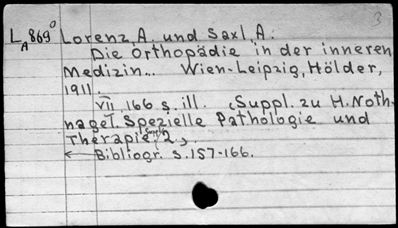 3
L 869° Lorenz, A. und Saxl A.
A
Die Orthopädie in der inneren
Medizin... Wien-Leipzig, Hölder,
1911.
VII 166 s. ill. (Suppl. zu H. Noth-
nagel. Spezielle Pathologie und
Therapie, 2,
Bibliogr. s. 157-166.